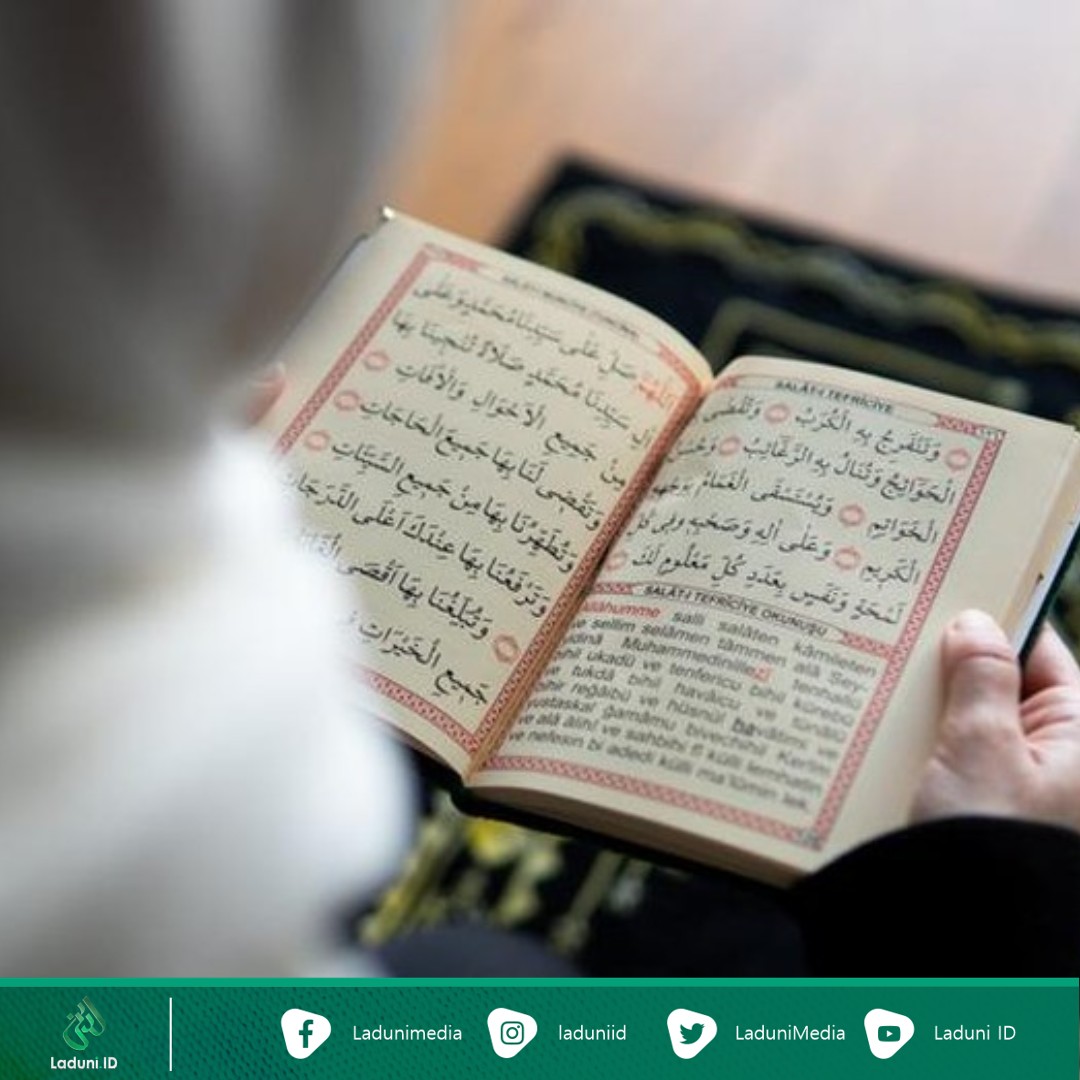 SALÂT-I TEFRİCİYE
وَتَنْفَرِجُ بِهِ الْكُرَبُ وَتُقْضٰى
الْحَوَائِجُ وَتُنَالُ بِهِ الرَّغَائِبُ وَحُسْنُ
الْخَوَاتِمِ وَيُسْتَسْقَى الْغَمَامُ بِوَجْهِهِ
الْكَرِيمِ وَعَلٰى اٰلِهِ وَصَحْبِهِ فِى كُلِّ
لَمْحَةٍ وَنَفَسٍ بِعَدَدِ كُلِّ مَعْلُومٍ لَكَ
SALÂT-I TEFRİCİYE OKUNUŞU
Allâhumme salli salâten kâmileten
ve sellim selâmen tâmmen alâ Sey-
yidinâ Muhammedinillezî tenhallü
bihil ukadü ve tenfericu bihil kürebü
ve tukdâ bihil havâicu ve tünâlü
bihir reğâibü ve hüsnül havâtimi ve
yustaskal ğamâmu bivechihil Kerîm
ve alâ âlihî ve sahbihî fî külli lemhatin
ve nefesin bi adedi külli ma'lûmin lek.
اَللّٰهُمَّ صَلِّ عَلٰى سَيِّدِنَا مُحَمَّدٍ وَعَلٰى
اٰلِ سَيِّدِنَا مُحَمَّدٍ صَلَاةً تُنْجِينَا بِهَا
مِنْ جَمِيعِ الْاَحْوَالِ وَالْاٰفَاتِ
وَتَقْضِى لَنَا بِهَا جَمِيعَ الْحَاجَاتِ
وَتُطَهِّرُنَا بِهَا مِنْ جَمِيعِ السَّيِّئَاتِ
وَتَرْفَعُنَا بِهَا عِنْدَكَ اَعْلَى الدَّرَجَاتِ
وَتُبَلِّغُنَا بِهَا اَقْصَى
جَمِيعِ الْخَيْرَاتِ
Laduni.ID
Ladunimedia
laduniid
LaduniMedia
Laduni ID